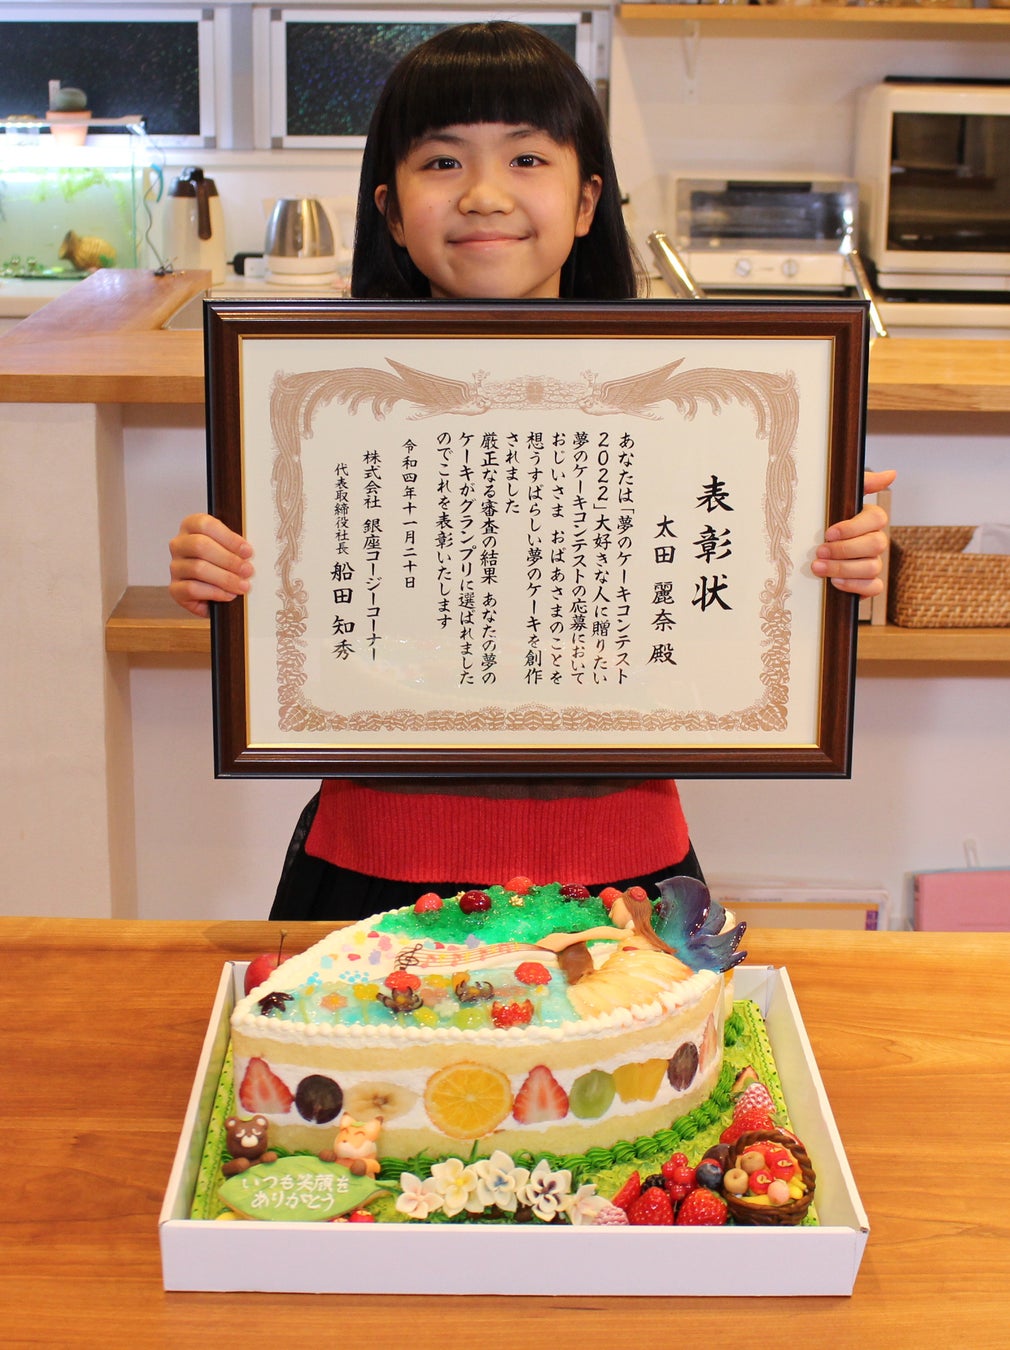 表彰状
太田 麗奈 殿
あなたは「夢のケーキコンテスト
2022」大好きな人に贈りたい
夢のケーキコンテストの応募において
おじいさま おばあさまのことを
想うすばらしい夢のケーキを創作
されました
厳正なる審査の結果 あなたの夢の
ケーキがグランプリに選ばれました
のでこれを表彰いたします
令和四年十一月二十日
株式会社 銀座コージーコーナー
代表取締役社長 船田 知秀
いつも笑顔を
ありがとう